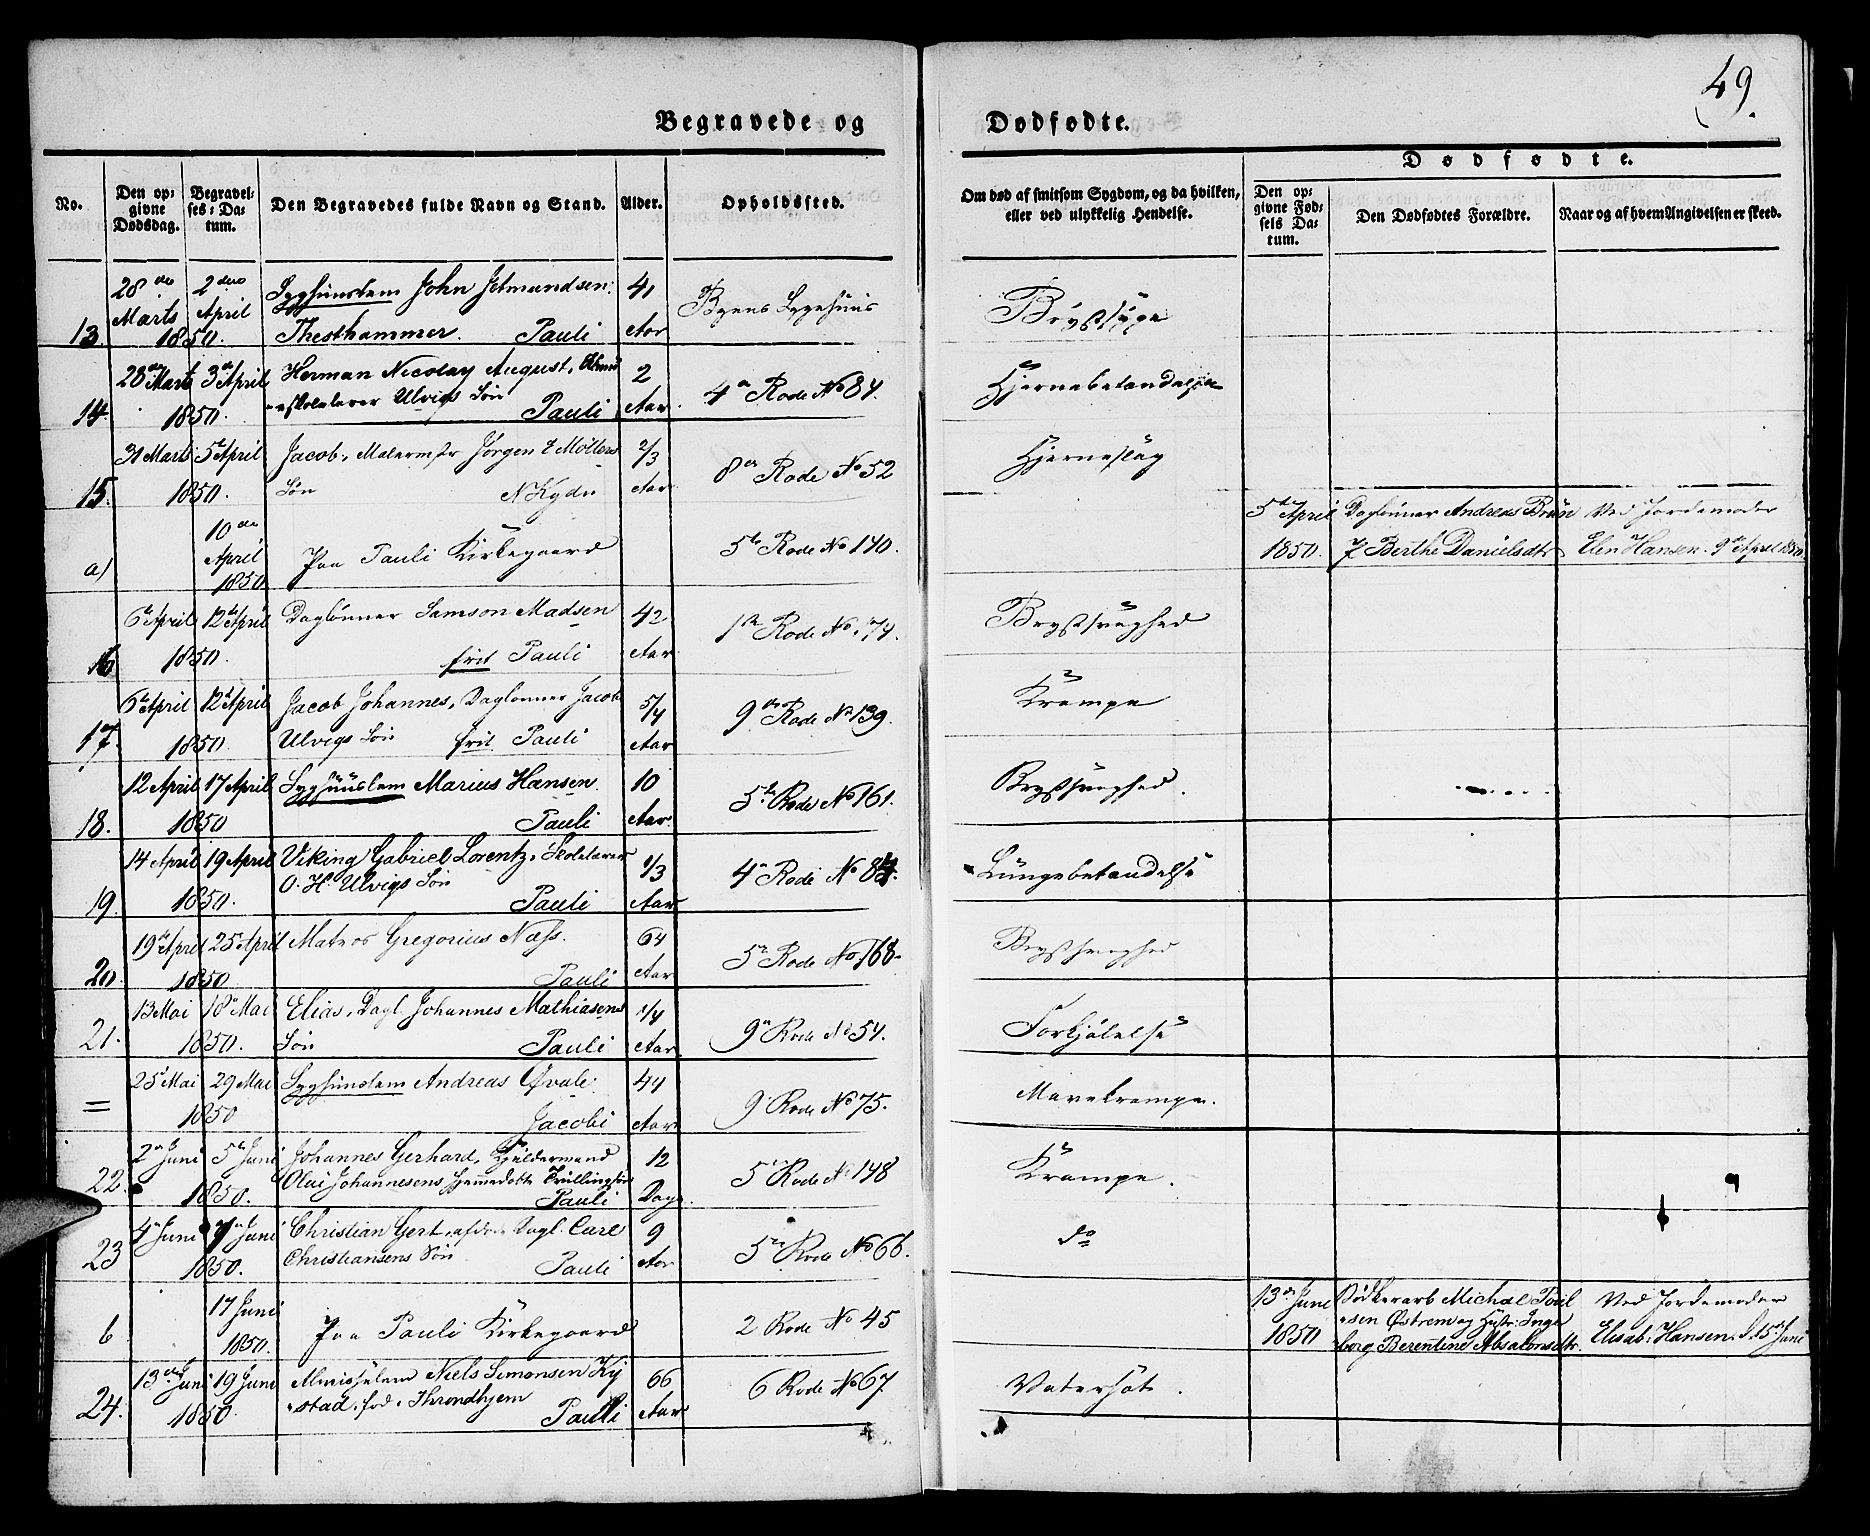 49.
Begravede og Dødfødte.
Dødfødte.
No.
Den op-
givne
Dødsdag.
Begravel-
ses-Da-
tum.
Den Begravedes fulde Navn og Stand.
Alder.
Opholdssted.
Om død af smitsom Sygdom, og da hvilken,
eller ved ulykkelig Hendelse.
Den op-
givne Fød-
sels Da-
tum.
Den Dødfødtes Forældre.
Naar og af hvem Angivelsen er skeed.
28de 2den Syghuuslem John Jetmundsen 41 Byens Sygehuus Brystsyge
Marts April
13. 1850. Thesthammer. Pauli Aar
28de Marts 3de April Herman Nicolay August, 2 4de Rode No 84. Hjernebetændelse
14. 1850. skolelærer Ulvigs Søn Pauli Aar
31 Marts 5te April Jacob, Malermstr Jørgen Møllers 2/3 8de Rode No 52 Hjerneslag
15. 1850. Søn Aar
10de 5te April Daglønner Andreas Ved Jordemoder
April Paa Pauli Kirkegaard 5te Rode No 140. 1850. Berthe Danielsdtr Elen Hansen. 9de April 1850.
a) 1850
6te April 12te April Daglønner Samson Madsen 42 1ste Rode No. 74. Brystsvaghed
16 1850. frit Pauli Aar
6te April 12te April Jacob Johannes, Daglønner Jacob 5/4 9de Rode No 139. Krampe
17. 1850. Ulvigs Søn frit Pauli Aar
12 April 17 April Syghuuslem Marius Hansen. 10 5te Rode No 161. Brystsvaghed.
18. 1850 Pauli Aar.
14 April 19 April Viking Gabriel Lorentz, Skolelærer 1/3 4de Rode No 84. Lungebetændelse
19. 1850. O. H. Ulvigs Søn Pauli Aar
19de April 25de April Matros Gregorius Næss. 64 5te Rode No 168. Brystsvaghed
20. 1850 Pauli Aar
13 Mai 18de Mai Elias, Dagl. Johannes Mathiasens 1/4 9de Rode No 54. Forkjølelse
21. 1850. Søn Pauli Aar
25de Mai 29 Mai Syghuuslem Andreas Øvale. 44 9de Rode No 75. Mavekrampe.
= 1850 Jacobi Aar
2den Juni 5te Juni Johannes Gerhard, 12 5te Rode No 148 Krampe.
22. 1850. Olai Johannesens Hjemmedøbte Trillingsøn Pauli Dage
4de Juni 7de Juni Christian Gert, afdøde Dagl. Carl 9 5te Rode No 66. do
23 1850. Christiansens Søn Pauli Aar
17 Juni 13de Juni Bødkerarb Michal Ved Jordemoder
b 1850. Paa Pauli Kirkegaard 2 Rode No 45 1850 sen Østrem og Hustr: Inge Elisab. Hansen. d 15de Juni
borg Berentine Absalonsdtr.
13de Juni 19 Juni Almisselem Niels Simonsen Ky 66 6 Rode No 67. Vatersot.
24. 1850. stad, fød i Throndhjem Pauli Aar